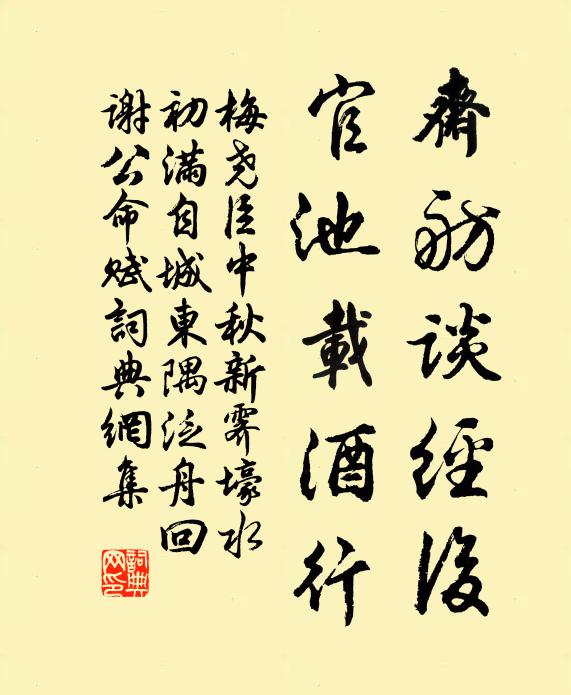 齋舫談經後
官池載酒行
梅堯臣中秋新霽壕水
初滿自城東隅泛舟回
謝公命賦詞典網集
詞典
网印